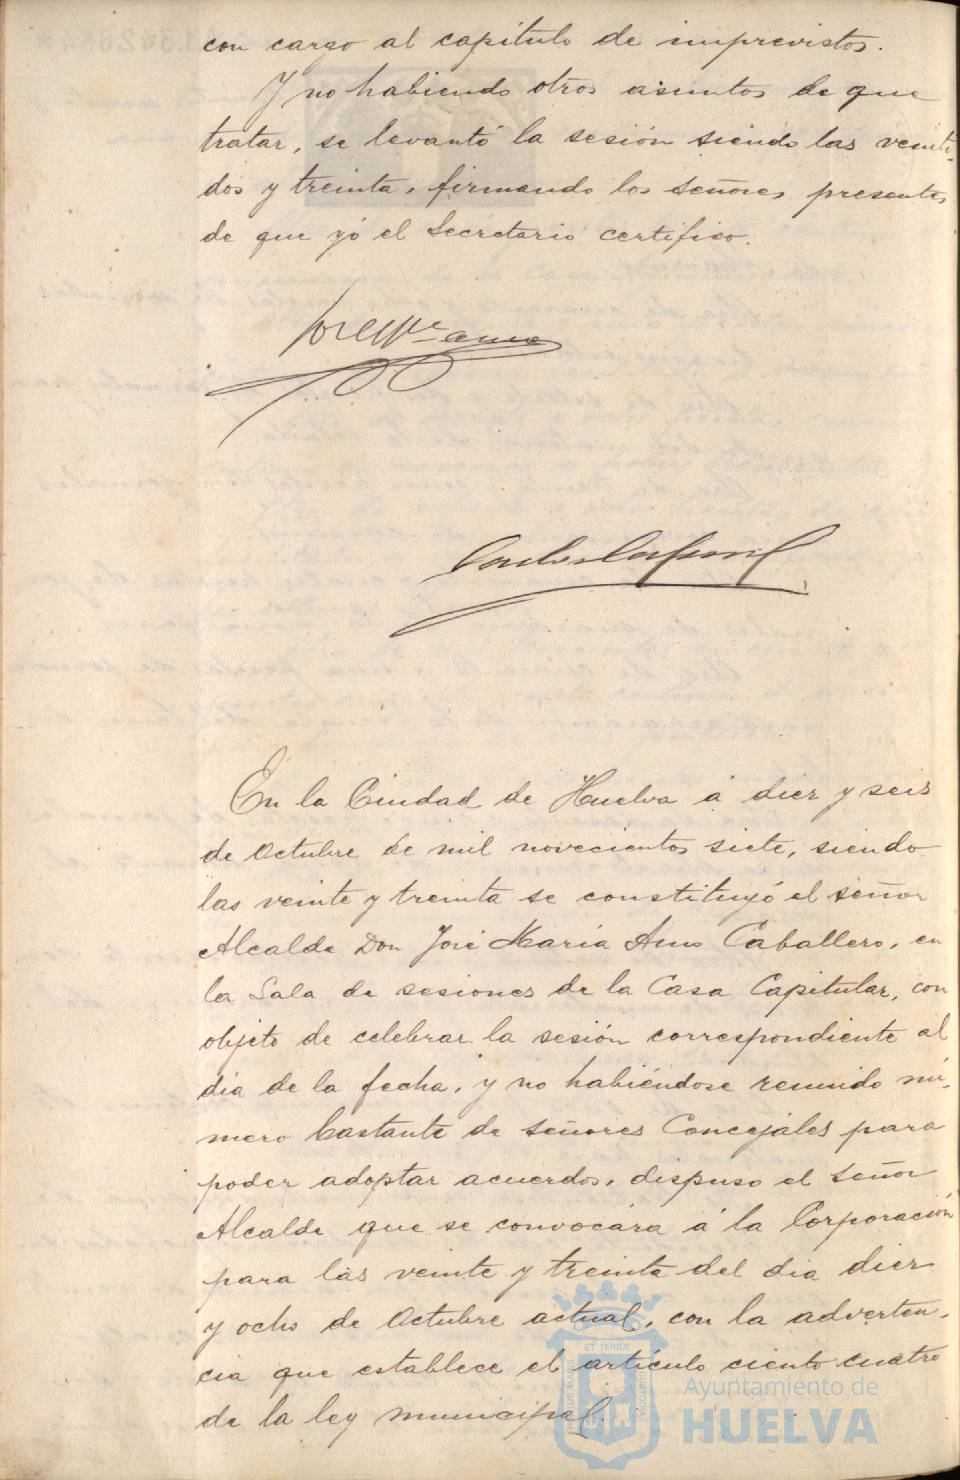 con cargo al capítulo de imprevistos.
Y no habiendo otros asuntos de que
tratar, se levantó la sesión siendo las veinti-
dos y treinta, firmando los señores presentes
de que yó el Secretario certifico.
En la Ciudad de Huelva á diez y seis
de Octubre de mil novecientos siete, siendo
las veinte y treinta se constituyó el señor
Alcalde Don José María Amo Caballero, en
la Sala de sesiones de la Casa Capitular, con
objeto de celebrar la sesión correspondiente al
día de la fecha, y no habiéndose reunido nú-
mero bastante de señores Concejales para
poder adoptar acuerdos, dispuso el señor
Alcalde que se convocára á la Corporación
para las veinte y treinta del día diez
y ocho de Octubre actual, con la adverten-
cia que establece el artículo ciento cuatro
de la ley municipal.
Ayuntamiento de
HUELVA